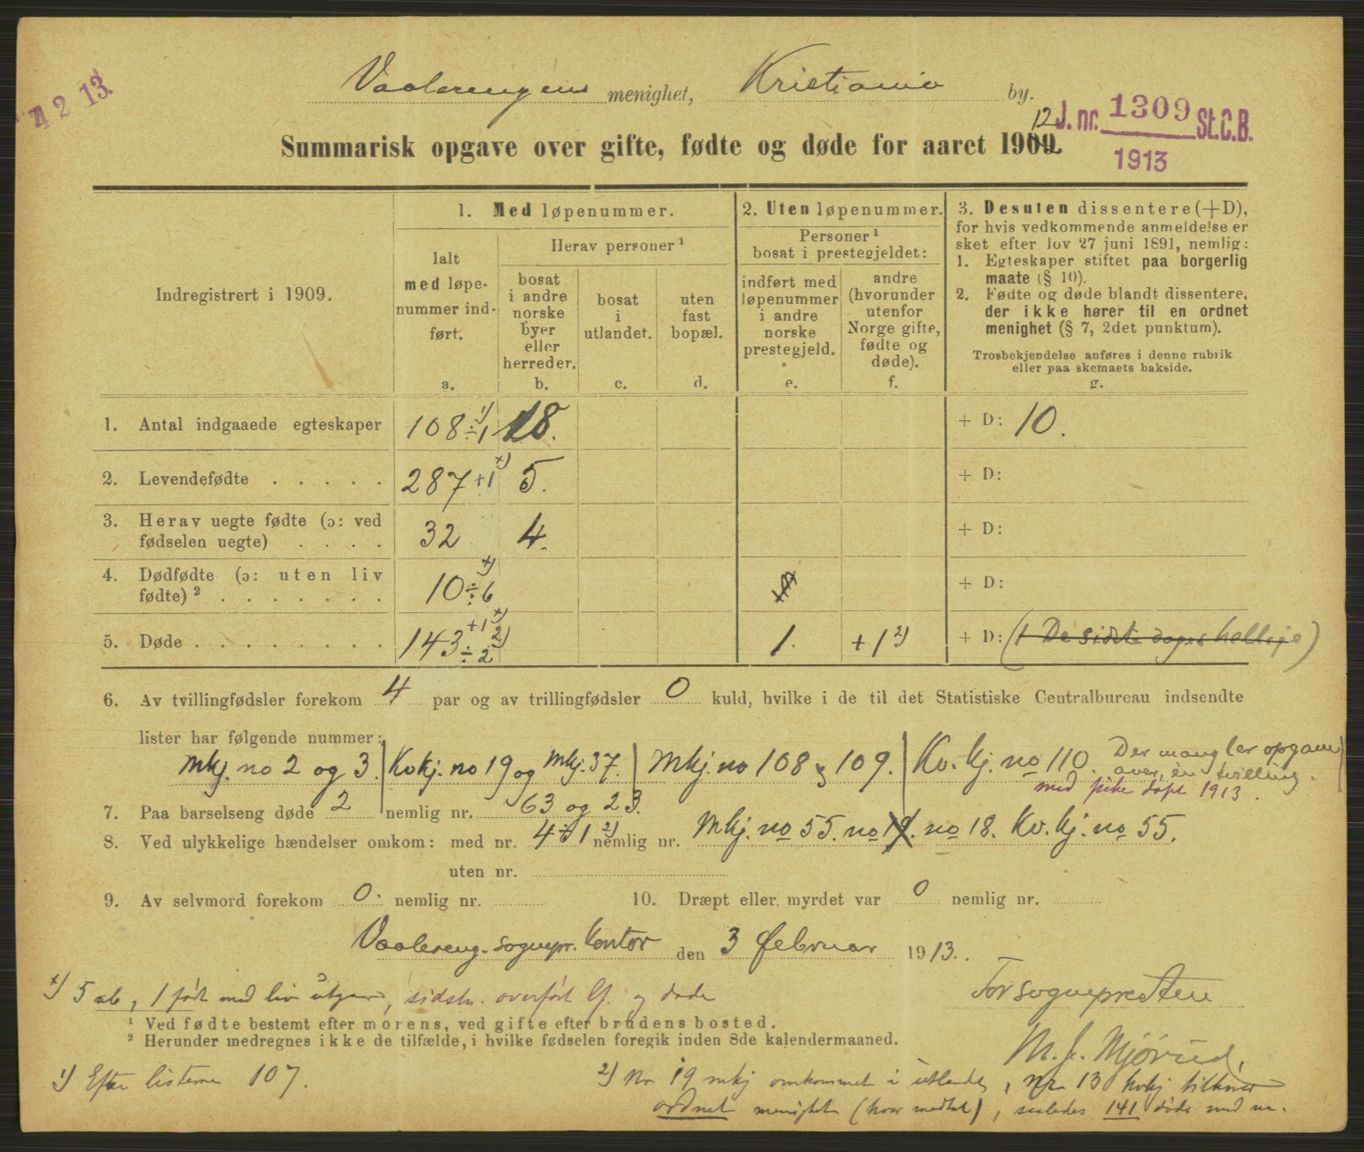 4 2 13.
Vaalerengens menighet, Kristiania by.
J. nr. 1309 St.C.B.
1913
Summarisk opgave over gifte, fødte og døde for aaret 1909. 12
Indregistrert i 1909.
1. Med løpenummer.
Ialt med løpenummer indført.
a.
Herav personer ¹
bosat i andre norske byer eller herreder.
b.
bosat i utlandet.
c.
uten fast bopæl.
d.
2. Uten løpenummer.
Personer ¹ bosat i prestegjeldet:
indført med løpenummer i andre norske prestegjeld.
e.
andre (hvorunder utenfor Norge gifte, fødte og døde).
f.
3. Desuten dissentere (+D),
for hvis vedkommende anmeldelse er
sket efter lov 27 juni 1891, nemlig:
1. Egteskaper stiftet paa borgerlig
maate (§ 10).
2. Fødte og døde blandt dissentere,
der ikke hører til en ordnet
menighet (§ 7, 2det punktum).
Trosbekjendelse anføres i denne rubrik
eller paa skemaets bakside.
g.
1. Antal indgaaede egteskaper 108 ÷1 ¹) 18. + D: 10.
2. Levendefødte . . . . . 287 +1 ×) 5. + D:
3. Herav uegte fødte (ɔ: ved
fødselen uegte) . . . . 32 4. + D:
4. Dødfødte (ɔ: uten liv
fødte) ² . . . . . . . 10 ÷6 ×) + D:
5. Døde . . . . . . . . 143 +1 ×) ÷2 ²) 1. +1 ²) + D: (1 De sidste dages hellige)
6. Av tvillingfødsler forekom 4 par og av trillingfødsler 0 kuld, hvilke i de til det Statistiske Centralbureau indsendte
lister har følgende nummer:
Mkj. no 2 og 3. Kvkj. no 19 og Mkj. 37. Mkj. no 108 & 109. Kv. kj. no 110. Der mangler opgave
over én tvilling.
med pike døpt 1913.
7. Paa barselseng døde 2 nemlig nr. 63 og 23.
8. Ved ulykkelige hændelser omkom: med nr. 4÷1 ²) nemlig nr. Mkj. no 55. no 19. no 18. Kv. kj. no 55.
uten nr.
9. Av selvmord forekom 0. nemlig nr. 10. Dræpt eller myrdet var 0 nemlig nr.
Vaalereng. sognepr. kontor den 3 februar 1913.
×) 5 ab, 1 født med liv utgaar, sidstn. overført lf. og døde
For sognepresten
¹ Ved fødte bestemt efter morens, ved gifte efter brudens bosted.
² Herunder medregnes ikke de tilfælde, i hvilke fødselen foregik inden 8de kalendermaaned.
M. J. Mjørud.
¹) Efter listerne 107.
²) Nr 19 mkj omkommet i utlandet, nr 13 kvkj tilhører
ordnet menighet (hvor medtat), saaledes 141 døde med nr.